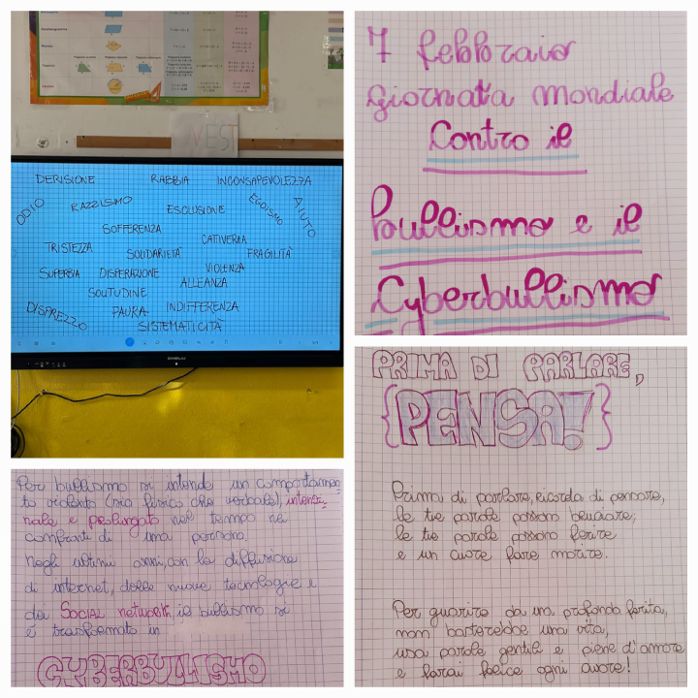 WEST
DERISIONE RABBIA INCONSAPEVOLEZZA
ODIO RAZZISMO ESCLUSIONE EGOISMO AIUTO
SOFFERENZA
TRISTEZZA SOLIDARIETÀ CATTIVERIA FRAGILITÀ
SUPERBIA DISPERAZIONE VIOLENZA
SOLITUDINE ALLEANZA
DISPREZZO PAURA INDIFFERENZA
SISTEMATICITÀ
7 febbraio
giornata mondiale
Contro il
Bullismo e il
Cyberbullismo
Per bullismo si intende un comportamen-
to violento (sia fisico che verbale), intenzio-
nale e prolungato nel tempo nei
confronti di una persona.
Negli ultimi anni, con la diffusione
di internet, delle nuove tecnologie e
dei Social network, il bullismo si
è trasformato in
CYBERBULLISMO
PRIMA DI PARLARE,
{PENSA!}
Prima di parlare, ricorda di pensare,
le tue parole possono bruciare;
le tue parole possono ferire
e un cuore fare morire.
Per guarire da una profonda ferita,
non basterebbe una vita,
usa parole gentili e piene d'amore
e farai felice ogni cuore!